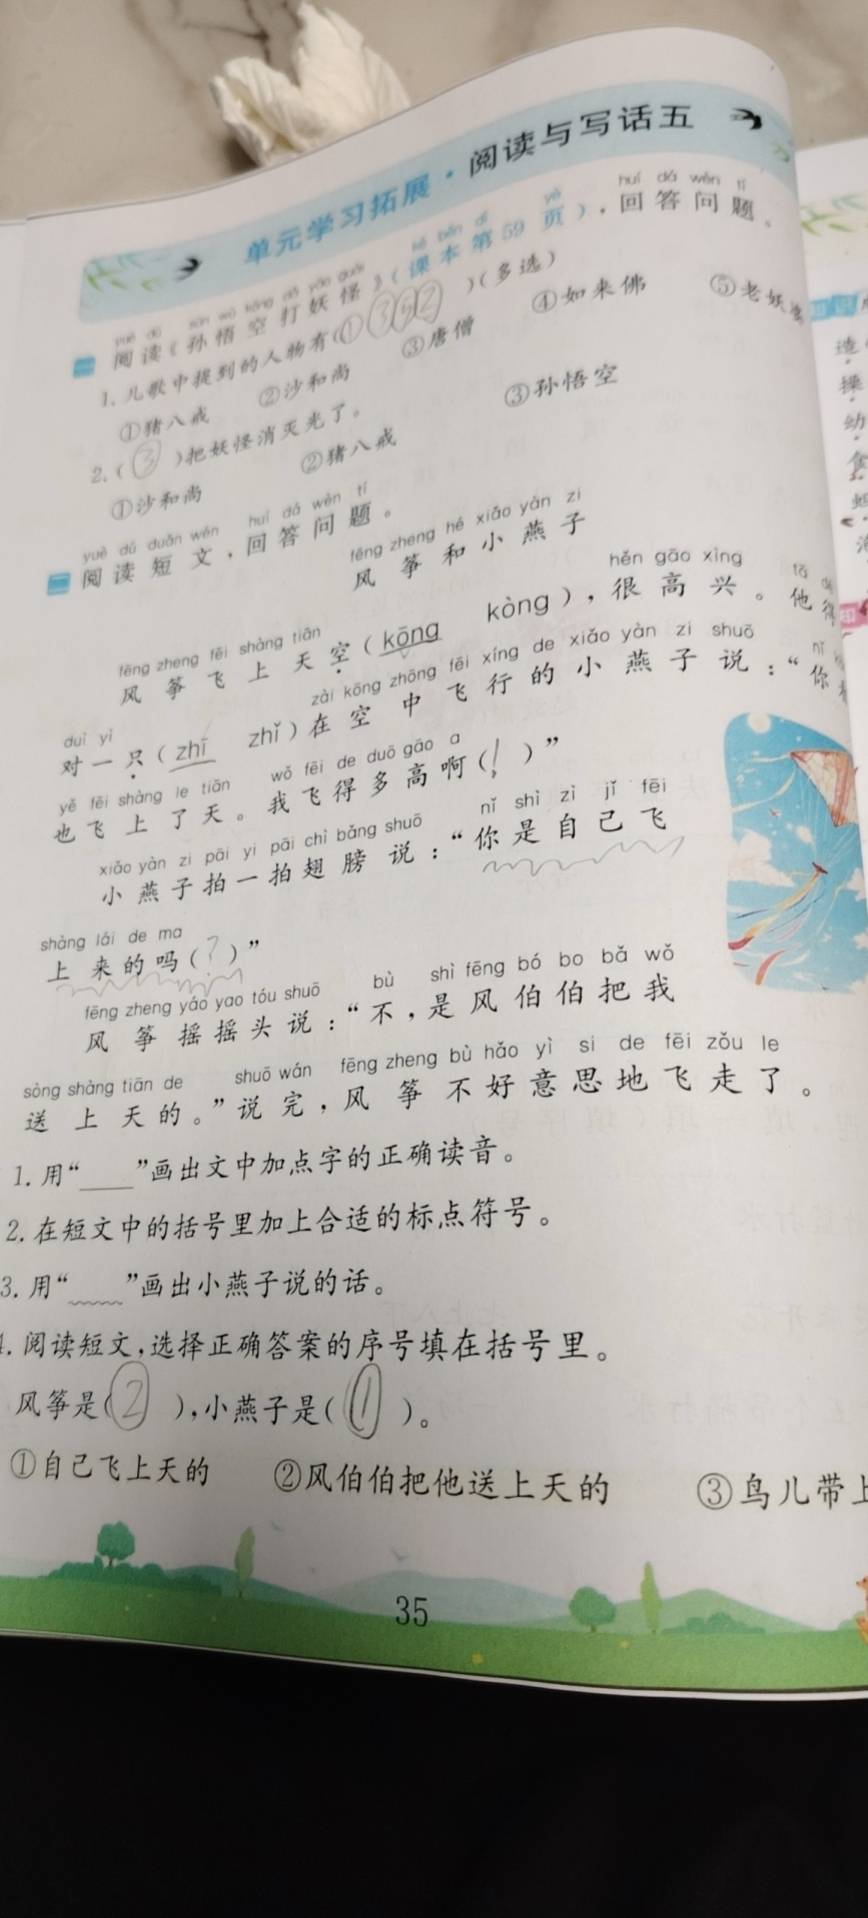 单元学习拓展·阅读与写话五
huí dá wèn tí
阅读《孙悟空打妖怪》(课本第59页),回答问题。
1.儿歌中提到的人物有(①③②)(多选)
①猪八戒 ②沙和尚 ③唐僧 ④如来佛 ⑤老妖婆
2.(3)把妖怪消灭光了。
①沙和尚 ②猪八戒 ③孙悟空
yuè dú duǎn wén huí dá wèn tí
二 阅读短文,回答问题。
fēng zheng hé xiǎo yàn zi
风筝和小燕子
fēng zheng fēi shàng tiān hěn gāo xìng
风筝飞上天空(kōng kòng),很高兴。他得
duì yì zài kōng zhōng fēi xíng de xiǎo yàn zi shuō
对一只(zhī zhǐ)在空中飞行的小燕子说:“你
yě fēi shàng le tiān wǒ fēi de duō gāo a
也飞上了天。我飞得多高啊(!)”
xiǎo yàn zi pāi yi pāi chì bǎng shuō nǐ shì zì jǐ fēi
小燕子拍一拍翅膀说:“你是自己飞
shàng lái de ma
上来的吗(?)”
fēng zheng yáo yao tóu shuō bù shì fēng bó bo bǎ wǒ
风筝摇摇头说:“不,是风伯伯把我
sòng shàng tiān de shuō wán fēng zheng bù hǎo yì si de fēi zǒu le
送上天的。”说完,风筝不好意思地飞走了。
1.用“____”画出文中加点字的正确读音。
2.在短文中的括号里加上合适的标点符号。
3.用“﹏﹏”画出小燕子说的话。
4.阅读短文,选择正确答案的序号填在括号里。
风筝是(2),小燕子是(①)。
①自己飞上天的 ②风伯伯把他送上天的 ③鸟儿带上
35
造
操
幼